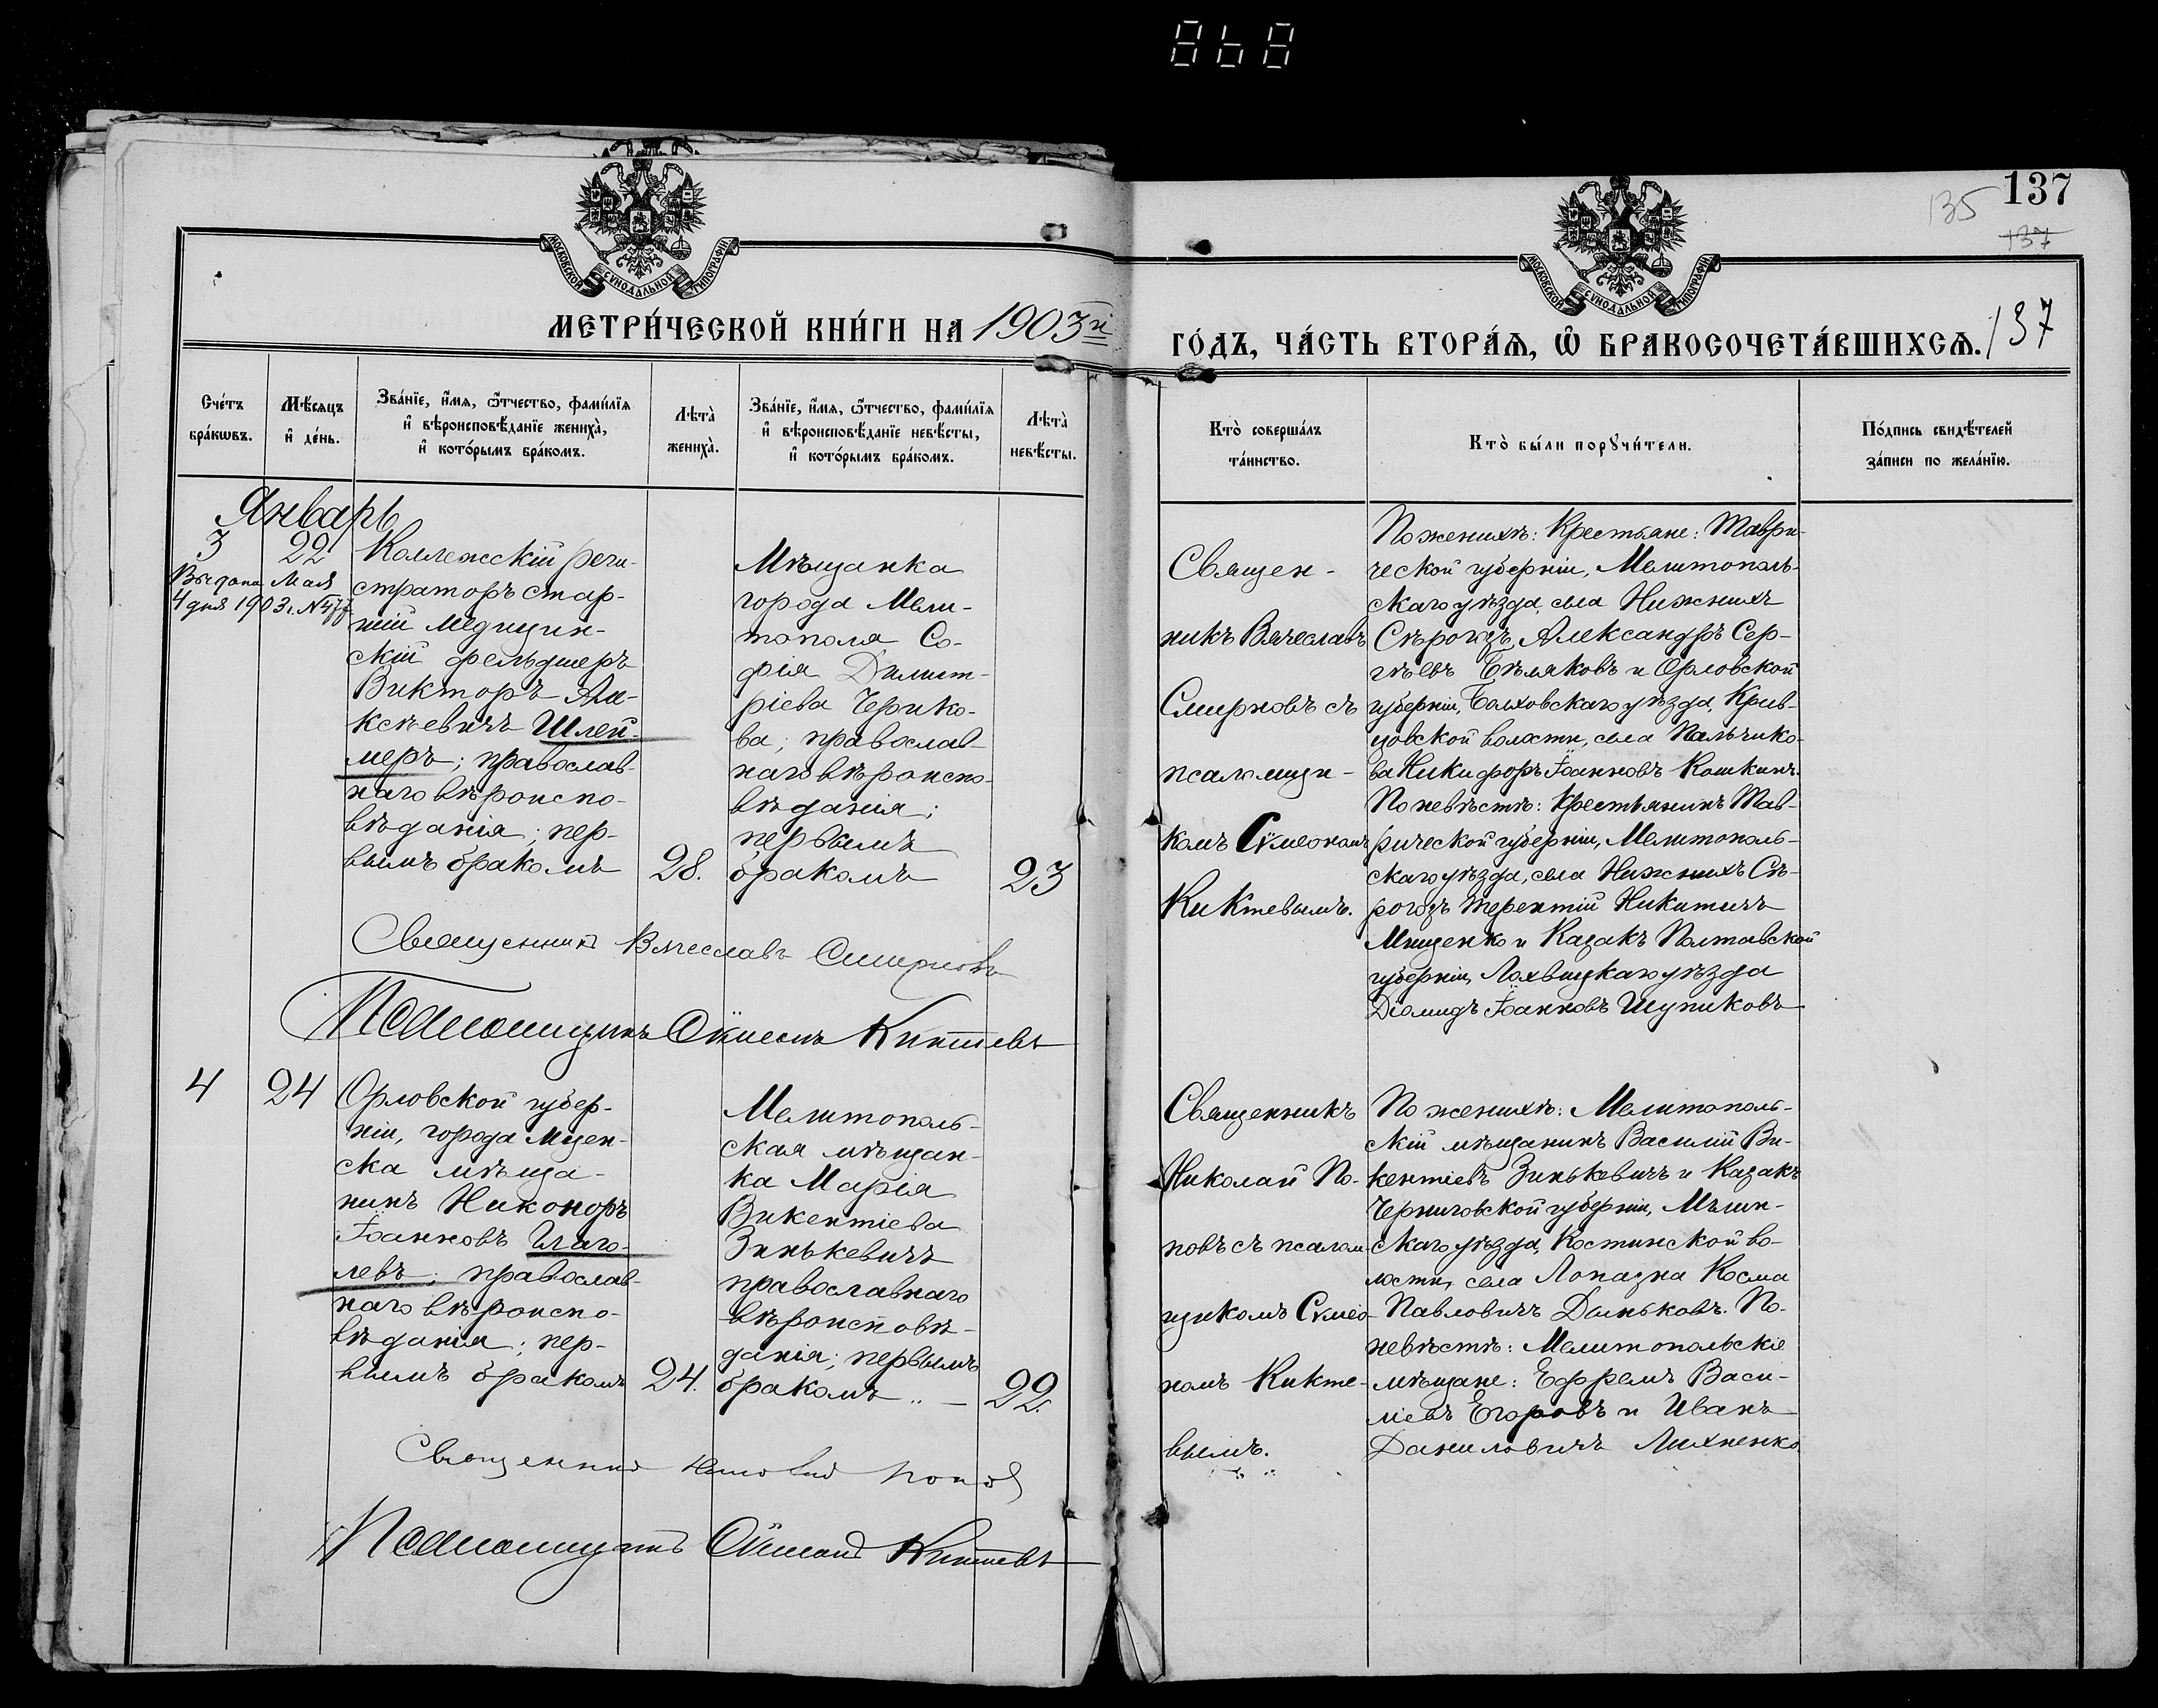 868
137
135
137
МОСКОВСКОЙ СѴНОДАЛЬНОЙ ТИПОГРАФІИ
МОСКОВСКОЙ СѴНОДАЛЬНОЙ ТИПОГРАФІИ
МЕТРИ́ЧЕСКОЙ КНИ́ГИ НА 1903й
ГО́ДЪ, ЧА́СТЬ ВТОРА́Ѧ, Ѽ БРАКОСОЧЕТА́ВШИХСѦ.
137
Сче́тъ бра́кѡвъ.
Мѣ́сяцъ и҆ де́нь.
Зва́нїе, и҆́мѧ, ѻ҆́тчество, фами́лїѧ и҆ вѣроисповѣ́данїе жениха̀, и҆ кото́рымъ бра́комъ.
Лѣта̀ жениха̀.
Зва́нїе, и҆́мѧ, ѻ҆́тчество, фами́лїѧ и҆ вѣроисповѣ́данїе невѣ́сты, и҆ кото́рымъ бра́комъ.
Лѣта̀ невѣ́сты.
Кто̀ соверша́лъ та́инство.
Кто̀ бы́ли порꙋчи́тели.
По́дпись свидѣ́телей за́писи по жела́нїю.
Январь
3
22
Выдана Мая
4 дня 1903 г. №
Коллежскій реги-
страторъ стар-
шій медицин-
скій фельдшеръ
Викторъ Але-
ксѣевичъ Шлей-
меръ; православ-
наго вѣроиспо-
вѣданія; пер-
вымъ бракомъ
28.
Мѣщанка
города Мели-
тополя Со-
фія Димит-
ріева Черико-
ва; православ-
наго вѣроиспо-
вѣданія;
первымъ
бракомъ
23
Священ-
никъ Вячеславъ
Смирновъ съ
псаломщи-
комъ Сѵмеономъ
Киктевымъ.
По женихѣ: Крестьяне: Таври-
ческой губерніи, Мелитополь-
скаго уѣзда, села Нижнихъ
Сѣрогозъ Александръ Сер-
гѣевъ Бѣляковъ и Орловской
губерніи, Болховскаго уѣзда, Крив-
цовской волости, села Пальчико-
ва Никифоръ Іоанновъ Кошкинъ.
По невѣстѣ: Крестьянинъ Тав-
рической губерніи, Мелитополь-
скаго уѣзда, села Нижнихъ Сѣ-
рогозъ Терентій Никитичъ
Мищенко и Казакъ Полтавской
губерніи, Лохвицкаго уѣзда
Діомидъ Іоанновъ Шупиковъ
Священникъ Вячеславъ Смирновъ
Псаломщикъ Сѵмеонъ Киктевъ
4
24
Орловской губер-
ніи, города Мцен-
ска мѣща-
нинъ Никоноръ
Іоанновъ Глаго-
левъ; православ-
наго вѣроиспо-
вѣданія; пер-
вымъ бракомъ
24.
Мелитополь-
ская мѣщан-
ка Марія
Викентіева
Зинькевичъ
православнаго
вѣроисповѣ-
данія; первымъ
бракомъ „ —
22.
Священникъ
Николай По-
повъ съ псалом-
щикомъ Сѵмео-
номъ Кикте-
вымъ.
По женихѣ: Мелитополь-
скій мѣщанинъ Василій Ви-
кентіевъ Зинькевичъ и Казакъ
Черниговской губерніи, Мглин-
скаго уѣзда, Костинской во-
лости, села Лопазна Косма
Павловичъ Даньковъ. По-
невѣстѣ: Мелитопольскіе
мѣщане: Ефремъ Васи-
ліевъ Егоровъ и Иванъ
Даниловичъ Лихненко
Священникъ Николай Поповъ
Псаломщикъ Сѵмеонъ Киктевъ